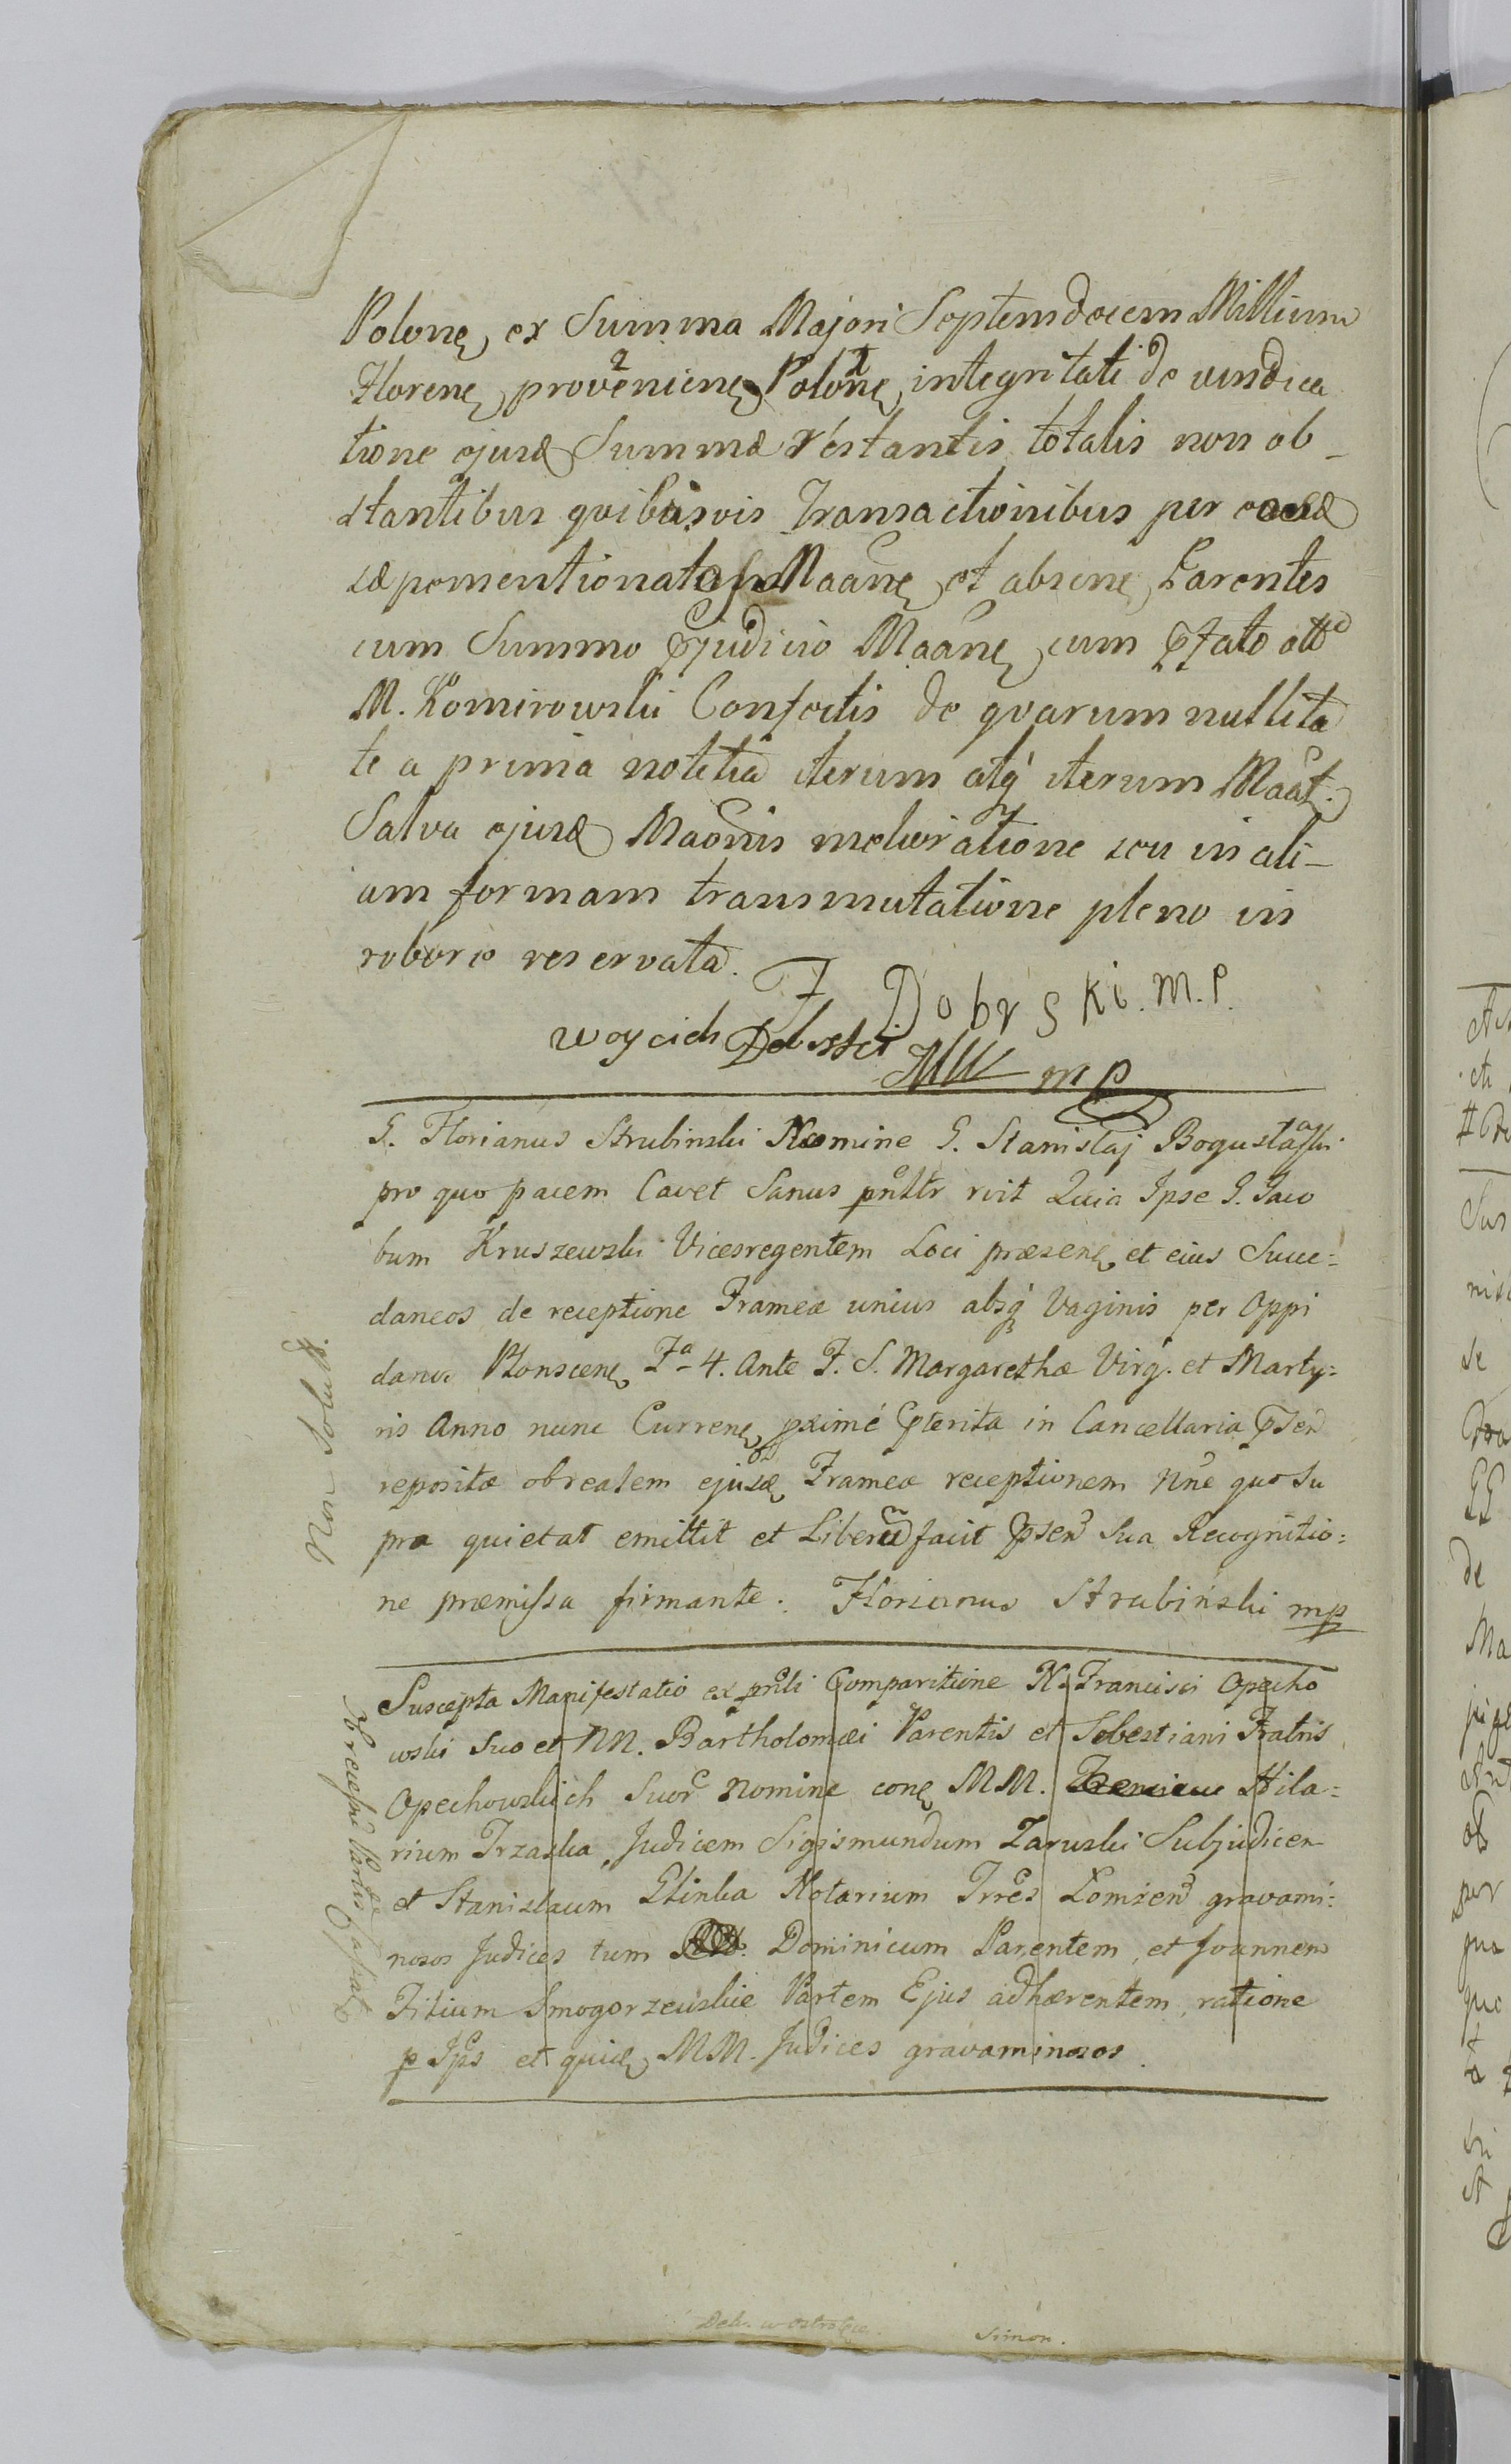 Polonę ex Summa Majori Septemdecem Millium
Florenę provenienę Polonę integritati de vindica
tione ejusd Summæ restantis totalis non ob_
stantibus quibusvis Transactionibus per eosd
sæpementionatos Maanę et absenę Parentes
cum Summo Pjudicio Maanę cum Pfato
M. Komirowski Confectis de qvarum nullita
te a prima notitia iterum atq iterum Maat.
Salva ejusd Maõnis melioratione seu in ali_
am formam transmutatione pleno in
robore reservata.
F Dobrski. m. p.
Woycich Dobrski
mp
G. Florianus Strubinski Nomine G. Stanislaj Bogusławski
pro quo pacem Cavet Sanus pnltr rvit Quia Ipse G. Jaco
bum Kruszewski Vicesregentem Loci præsenę et eius Succe=
daneos de receptione Frameæ unius absq Vaginis per Oppi
danos Płonscenę Fª 4. Ante F. S. Margarethæ Virg. et Marty=
ris Anno nunc Currenę pximé Pterita in Cancellaria Psen
repositæ ob realem ejusdę Frameæ receptionem Nne quo Su
pra quietat emittit et Liberũ facit Psen Sua Recognitio=
ne præmissa firmante. Florianus Strubiński mp
Non Solut.
Suscepta Manifestatio ex pnli Comparitione N. Francisci Opecho
wski Suo et NN. Bartholomæi Parentis et Sebestiani Fratris
Opechowskich Suor Nomine conę MM. Hila=
rium Trzaska Judicem Sigismundum Zaruski Subjudicem
et Stanislaum Glinka Notarium Trres Łomzen gravami=
nosos Judices tum Dominicum Parentem, et Joannem
Filium Smogorzewskie Partem Ejus adhærentem, ratione
p Jps et quidę MM. Judices gravaminosos.
Pro recessu Partis Cassat
Simon.